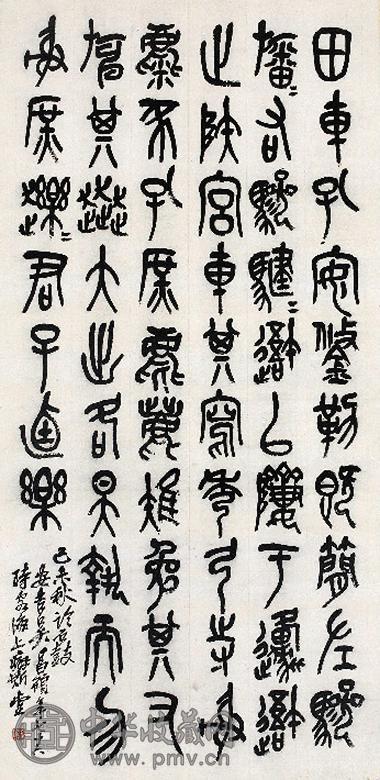 田車孔安鋚勒既簡左驂
旛=右驂騝=𨖍以隮于邍𨖍
止陝宮車其寫秀弓寺射
麋豕孔庶麀鹿雉兔其又
旃其奔大出各昊執而勿
射庶趯=君子逌樂
己未秋臨石鼓
安吉吳昌碩年七十六
時客海上癖斯堂
中华收藏网
www.pmv.cn